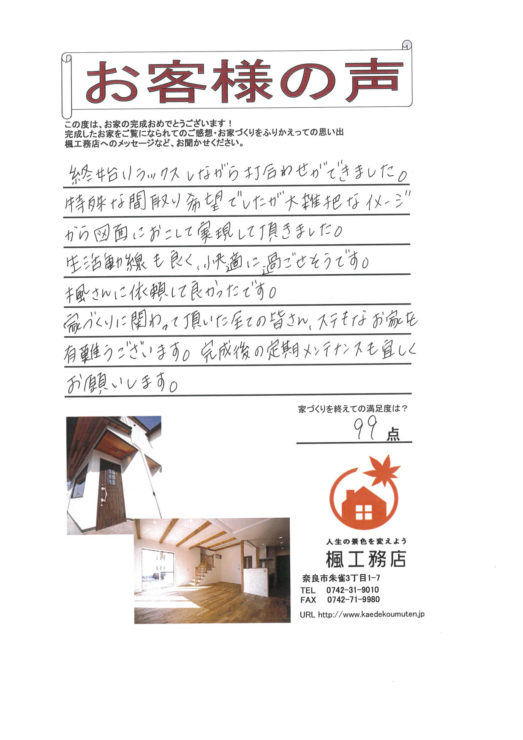 お客様の声
この度は、お家の完成おめでとうございます！
完成したお家をご覧になられてのご感想・お家づくりをふりかえっての思い出
楓工務店へのメッセージなど、お聞かせください。
終始リラックスしながら打合わせができました。
特殊な間取り希望でしたが大雑把なイメージ
から図面におこして実現して頂きました。
生活動線も良く、快適に過ごせそうです。
楓さんに依頼して良かったです。
家づくりに関わって頂いた全ての皆さん、ステキなお家を
有難うございます。完成後の定期メンテナンスも宜しく
お願いします。
家づくりを終えての満足度は？
99 点
人生の景色を変えよう
楓工務店
奈良市朱雀3丁目1-7
TEL 0742-31-9010
FAX 0742-71-9980
URL http://www.kaedekoumuten.jp